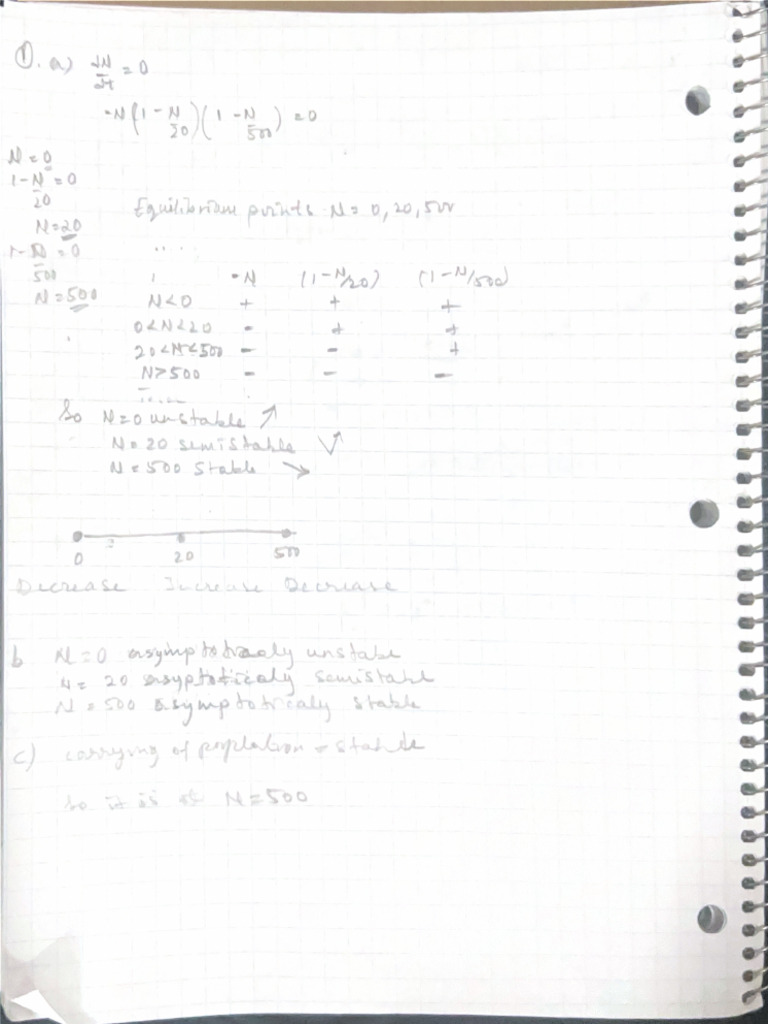 ①. a) dN/dt = 0
-N(1-N/20)(1-N/500) = 0
N=0
1-N/20=0
N=20
1-N/500=0
N=500
Equilibrium points N= 0, 20, 500
-N (1-N/20) (1-N/500)
N<0 + + +
0<N<20 - + +
20<N<500 - - +
N>500 - - -
So N=0 unstable ↗
N=20 semistable
N=500 Stable ↘
0 20 500
Decrease Increase Decrease
b N=0 asymptotically unstable
N= 20 asyptotically semistable
N=500 asymptotically stable
c) carrying of popllation = stable
So it is at N=500